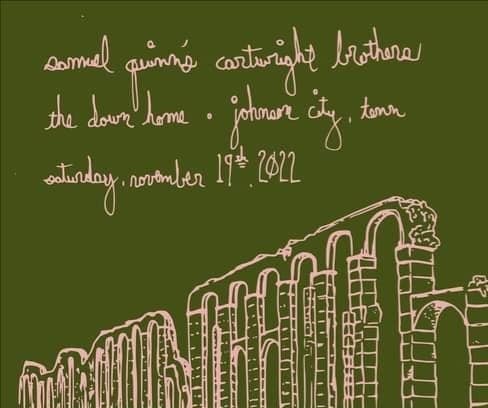 samuel quinn's cartwright brothers
the down home • johnson city, tenn
saturday, november 19th, 2022